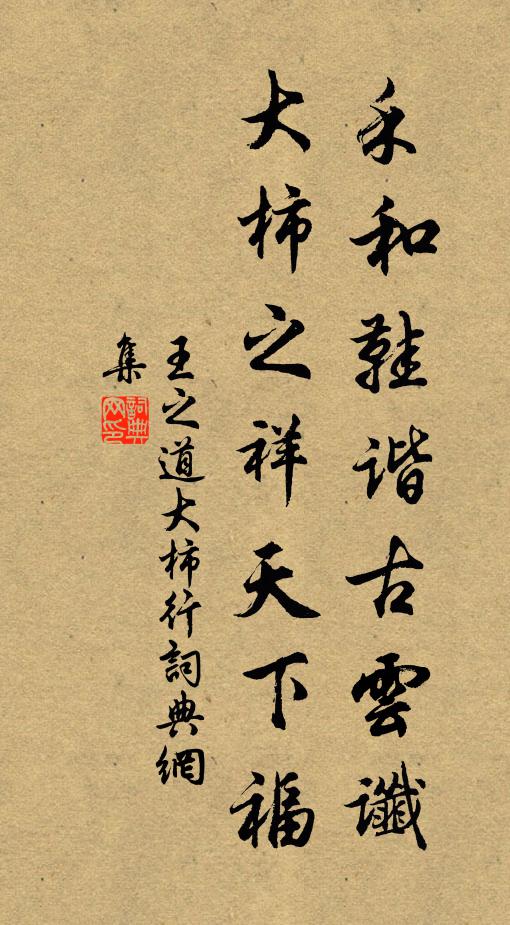 禾和鞋谐古雲讖
大柿之祥天下福
王之道大柿行詞典網
集
詞典
网印